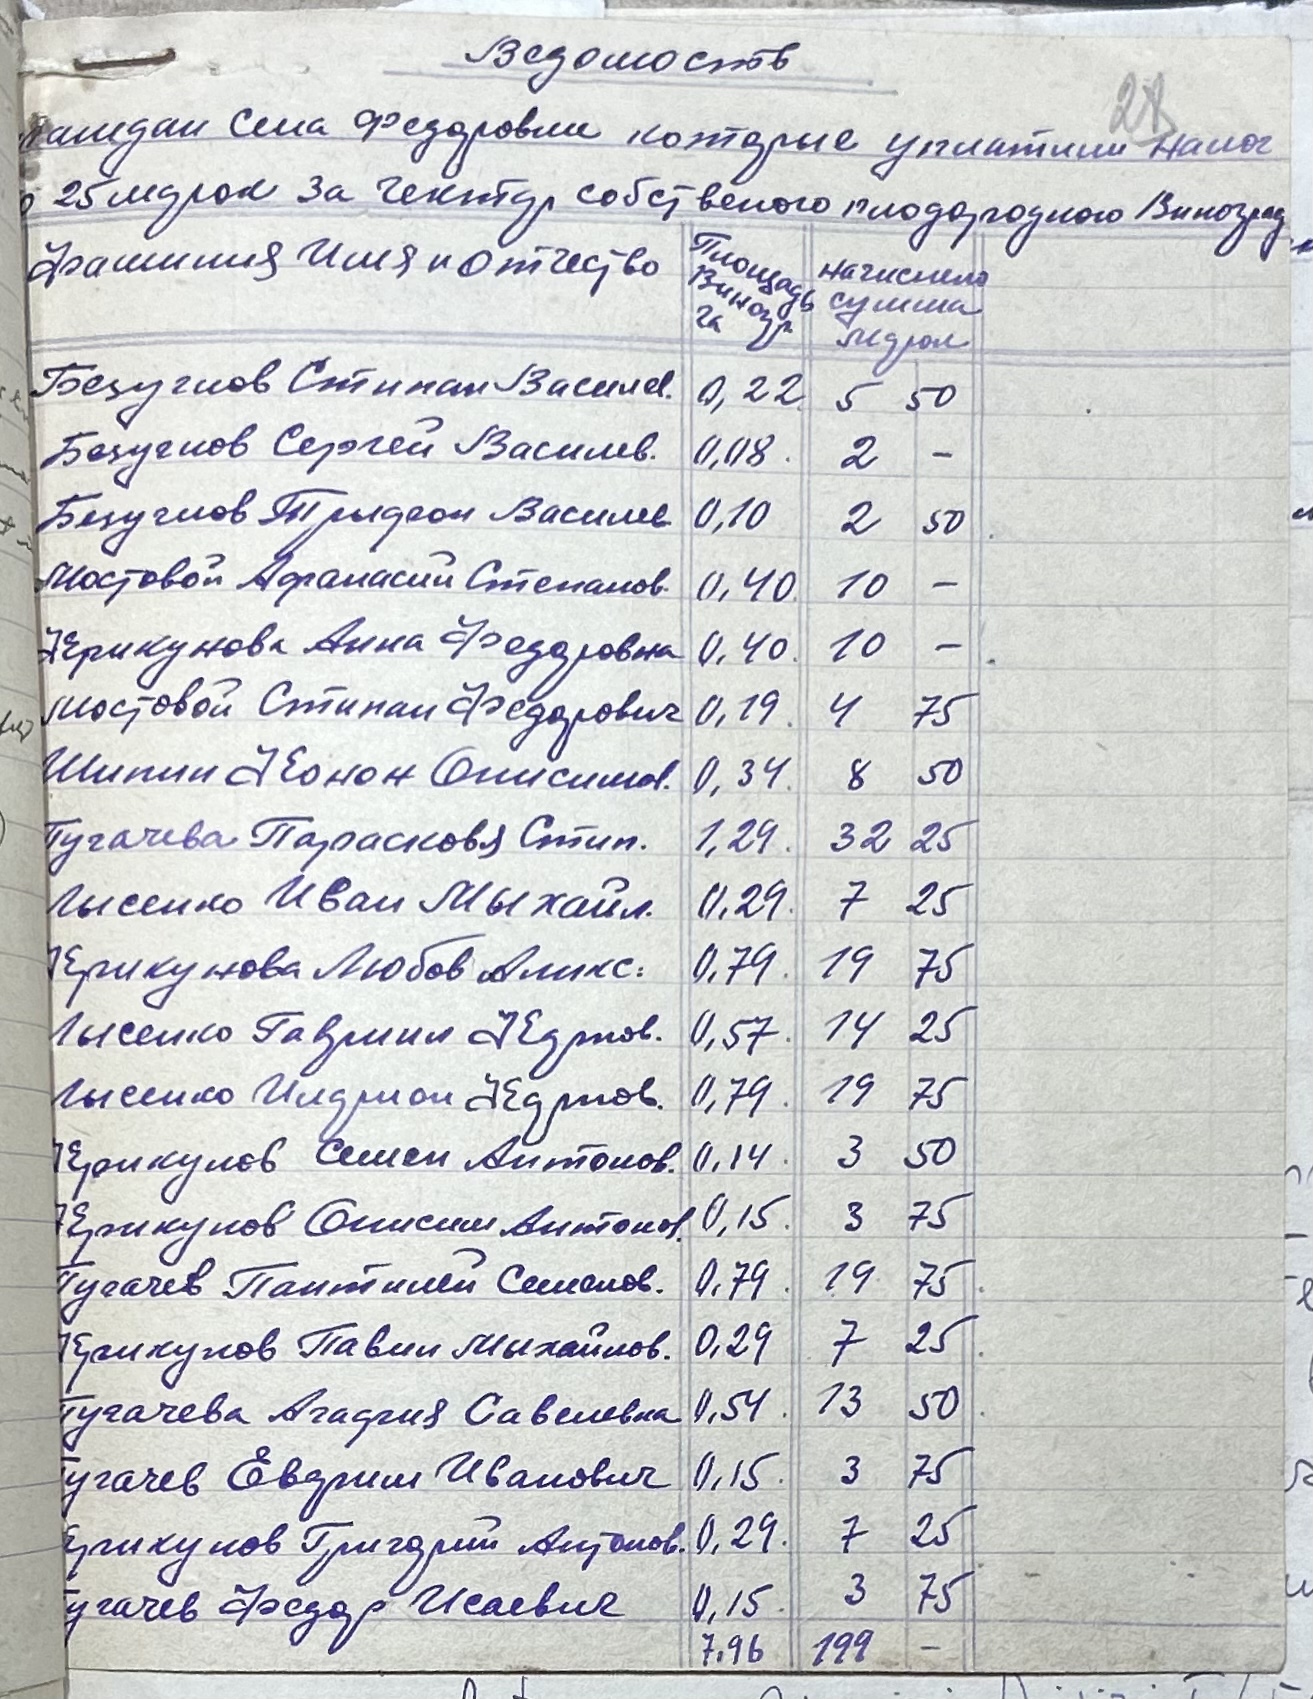 Ведомоств
28
граждан Села Федоровки которые уплатили налог
25 мдрок За гектар собственого плодородного Виноград
Фамилия Имя и Отчество Площадь Виногр га начислено сумма мдрок
Безуглов Стипан Василев. 0,22. 5 50
Безуглов Сергей Василев. 0,08. 2 –
Безуглов Трыфон Василев 0,10 2 50
Мостовой Афанасий Степанов. 0,40. 10 –
Жерикунова Анна Федоровна 0,40. 10 –
Мостовой Стипан Федорович 0,19. 4 75
Шипил Конон Онисимов. 0,34. 8 50
Пугачева Парасковя Стип. 1,29. 32 25
Лысенко Иван Мыхайл. 0,29. 7 25
Жерикунова Любов Аликс. 0,79. 19 75
Лысенко Гавриил Кдрнов. 0,57. 14 25
Лысенко Илдрион Кдрнов. 0,79. 19 75
Жерикунов Семен Антонов. 0,14. 3 50
Жерикунов Онисим Антонов. 0,15. 3 75
Пугачев Пантилей Семенов. 0,79. 19 75
Жерикунов Павил Мыхайлов. 0,29 7 25
Пугачева Агафия Савелевна 0,54. 13 50
угачев Евдрим Иванович 0,15. 3 75
ерикунов Григорий Антонов. 0,29. 7 25
угачев Федор Исаевич 0,15. 3 75
7,96 199 –